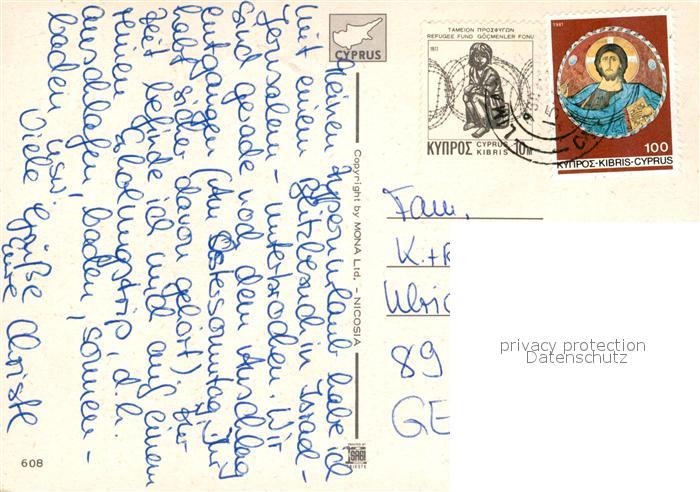 Meinen Zypernurlaub habe ich
mit einem Blitzbesuch in Israel-
Jerusalem - unterbrochen. Wir
sind gerade noch dem Anschlag
entgangen (Am Ostersonntag, Ihr
habt sicher davon gehört). Zur
Zeit befinde ich mich auf einem
reinen Erholungstrip, d.h.
ausschlafen, baden, sonnen-
baden, usw.
Viele Grüße
Eure Christl
CYPRUS
Copyright by MONA Ltd. - NICOSIA
608
PRINTED BY
SAGI
TRIESTE
ΤΑΜΕΙΟΝ ΠΡΟΣΦΥΓΩΝ
REFUGEE FUND GÖÇMENLER FONU
1977
ΚΥΠΡΟΣ CYPRUS KIBRIS 10M
1981
100
ΚΥΠΡΟΣ-KIBRIS-CYPRUS
Fam.
K.+R
Ulric
89
GE
privacy protection
Datenschutz